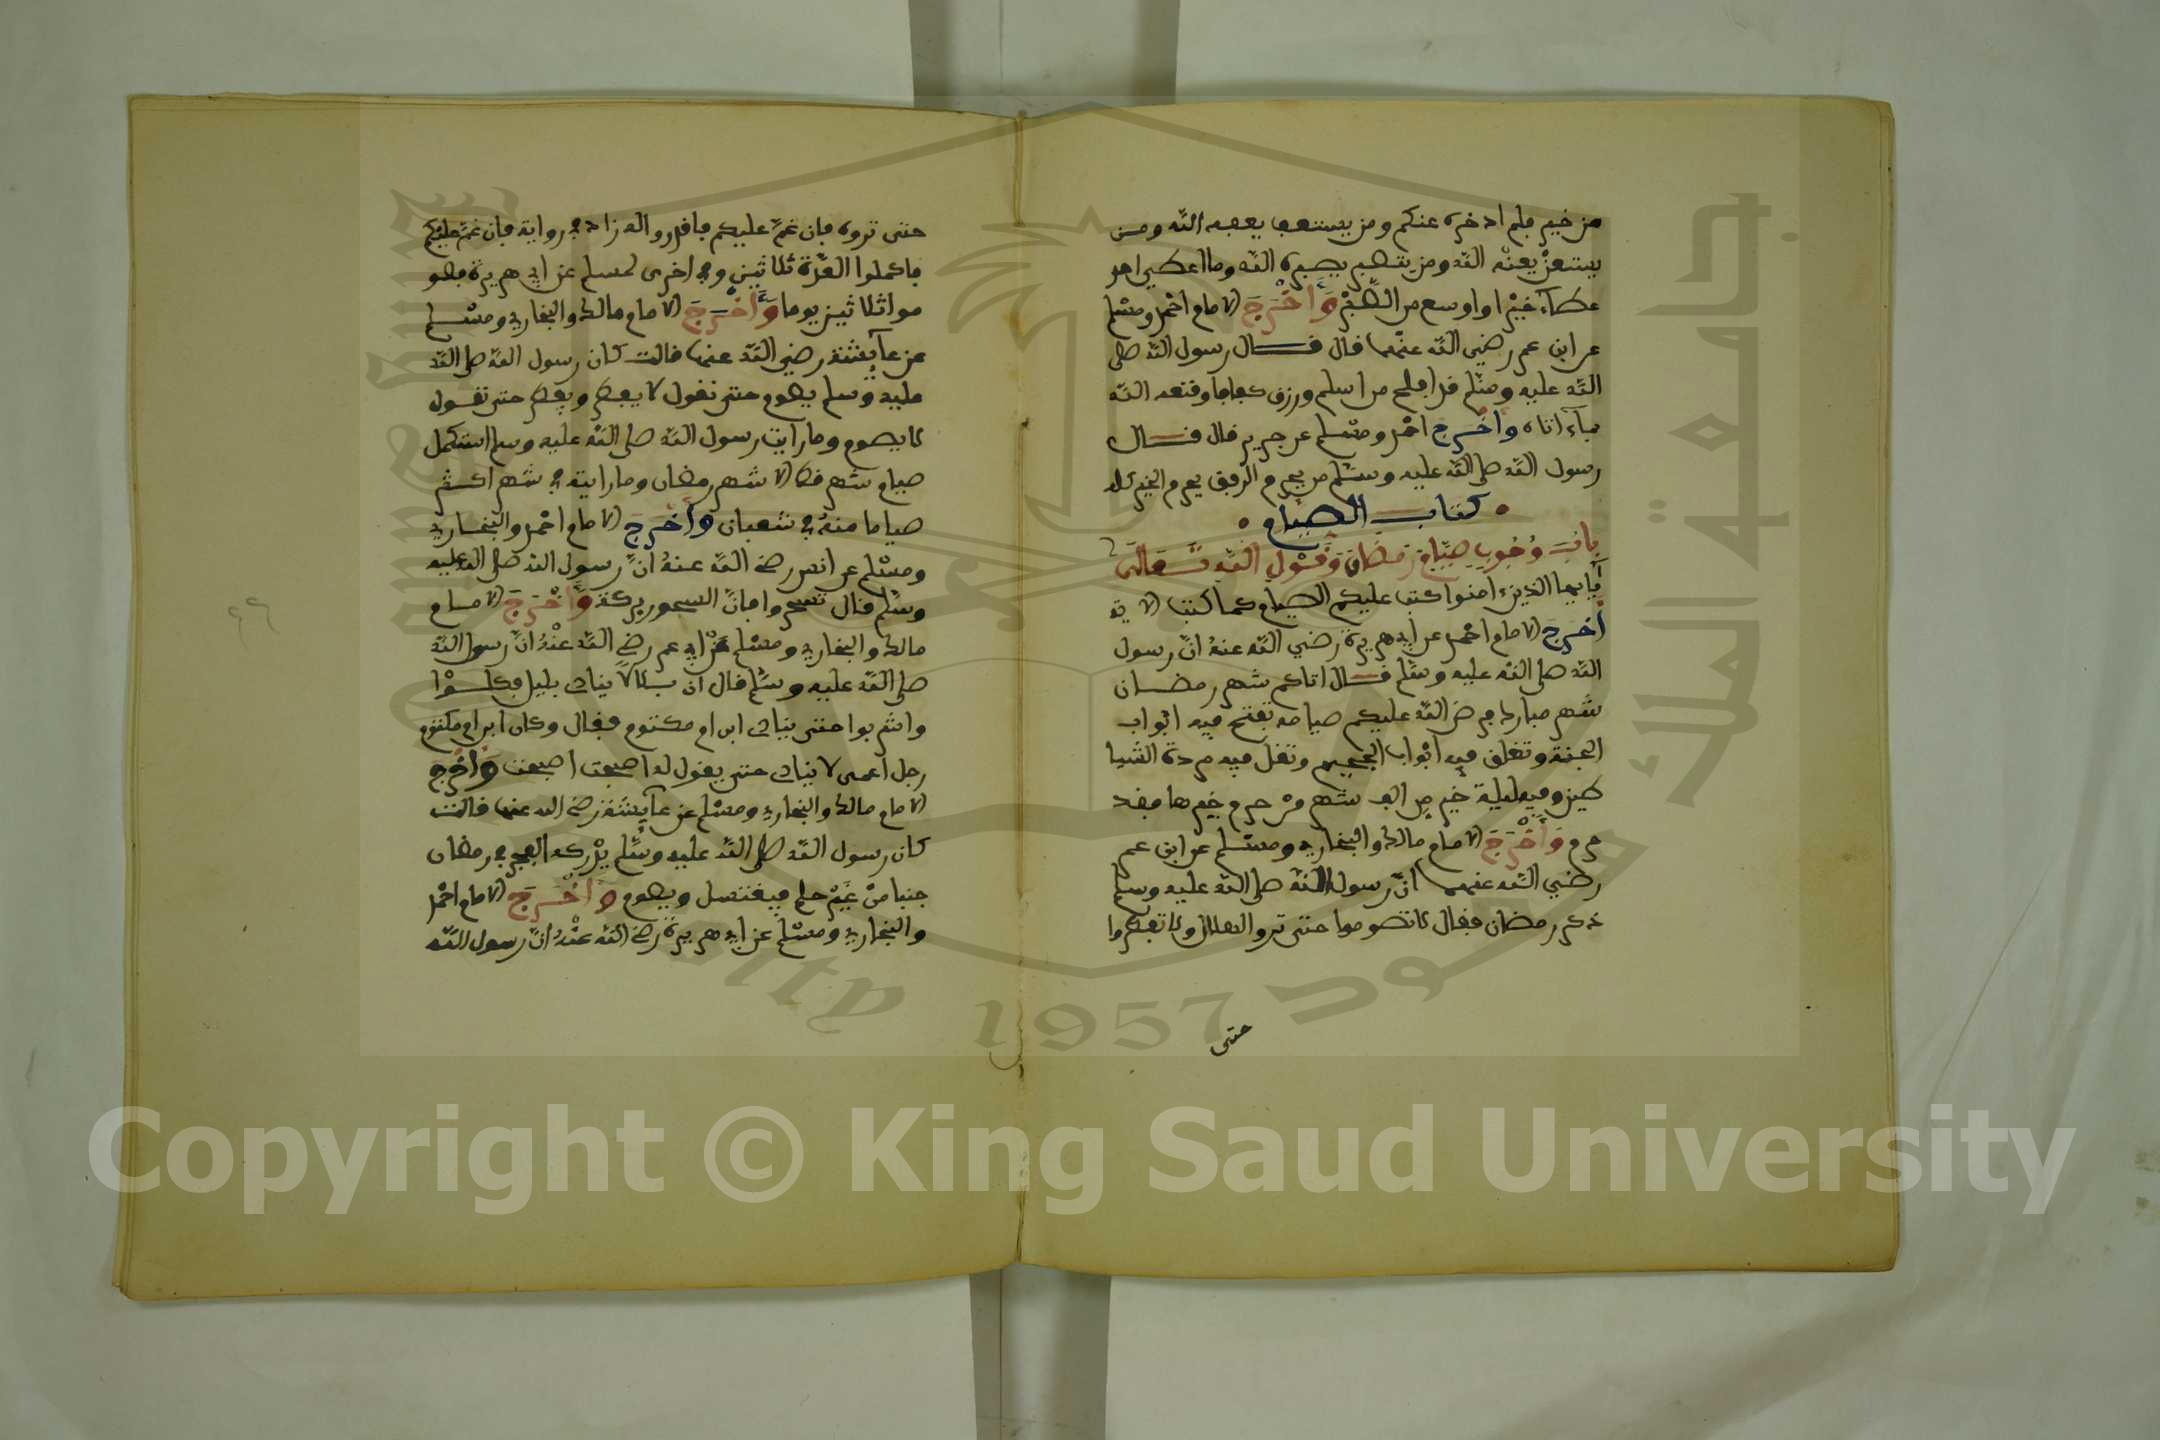 من خير فلم ادخره عنكم ومن يستعف يعفه الله ومن
يستغن يغنه الله ومن يتصبر يصبره الله وما اعطي احد
عطاء خيرا واوسع من الصبر وأخرج الامام احمد ومسلم
عن ابن عمر رضي الله عنهما قال قال رسول الله صلى
الله عليه وسلم قد افلح من اسلم ورزق كفافا وقنعه الله
بما آتاه وأخرج احمد ومسلم عن جرير قال قال
رسول الله صلى الله عليه وسلم من يحرم الرفق يحرم الخير كله
كتاب الصيام
باب وجوب صيام رمضان وقول الله تعالى
يا أيها الذين ءامنوا كتب عليكم الصيام كما كتب الاية
أخرج الامام احمد عن ابي هريرة رضي الله عنه أن رسول
الله صلى الله عليه وسلم قال اتاكم شهر رمضان
شهر مبارك فرض الله عليكم صيامه تفتح فيه ابواب
الجنة وتغلق فيه أبواب الجحيم وتغل فيه مردة الشيا
طين وفيه ليلة خير من الف شهر من حرم خيرها فقد
حرم وأخرج الامام مالك والبخاري ومسلم عن ابن عمر
رضي الله عنهما أن رسول الله صلى الله عليه وسلم
ذكر رمضان فقال لا تصوموا حتى تروا الهلال ولا تفطروا
حتى
حتى تروه فإن غم عليكم فاقدروا له زاد في رواية فإن غم عليكم
فاكملوا العدة ثلاثين وفي اخرى لمسلم عن ابي هريرة فصو
موا ثلاثين يوما وأخرج الامام مالك والبخاري ومسلم
عن عائشة رضي الله عنها قالت كان رسول الله صلى الله
عليه وسلم يصوم حتى نقول لا يفطر ويفطر حتى نقول
لا يصوم وما رأيت رسول الله صلى الله عليه وسلم استكمل
صيام شهر قط الا شهر رمضان وما رايته في شهر اكثر
صياما منه في شعبان وأخرج الامام احمد والبخاري
ومسلم عن انس رضي الله عنه أن رسول الله صلى الله عليه
وسلم قال تسحروا فإن السحور بركة وأخرج الامام
مالك والبخاري ومسلم عن ابي عمر رضي الله عنه أن رسول الله
صلى الله عليه وسلم قال ان بلالا ينادي بليل فكلوا
واشربوا حتى ينادي ابن ام مكتوم فقال وكان ابن ام مكتوم
رجل أعمى لا ينادي حتى يقول له اصبحت اصبحت وأخرج
الامام مالك والبخاري ومسلم عن عائشة رضي الله عنها قالت
كان رسول الله صلى الله عليه وسلم يدركه الفجر في رمضان
جنبا من غير حلم فيغتسل ويصوم وأخرج الامام احمد
والبخاري ومسلم عن ابي هريرة رضي الله عنه أن رسول الله
جامعة الملك سعود
1957
Copyright © King Saud University